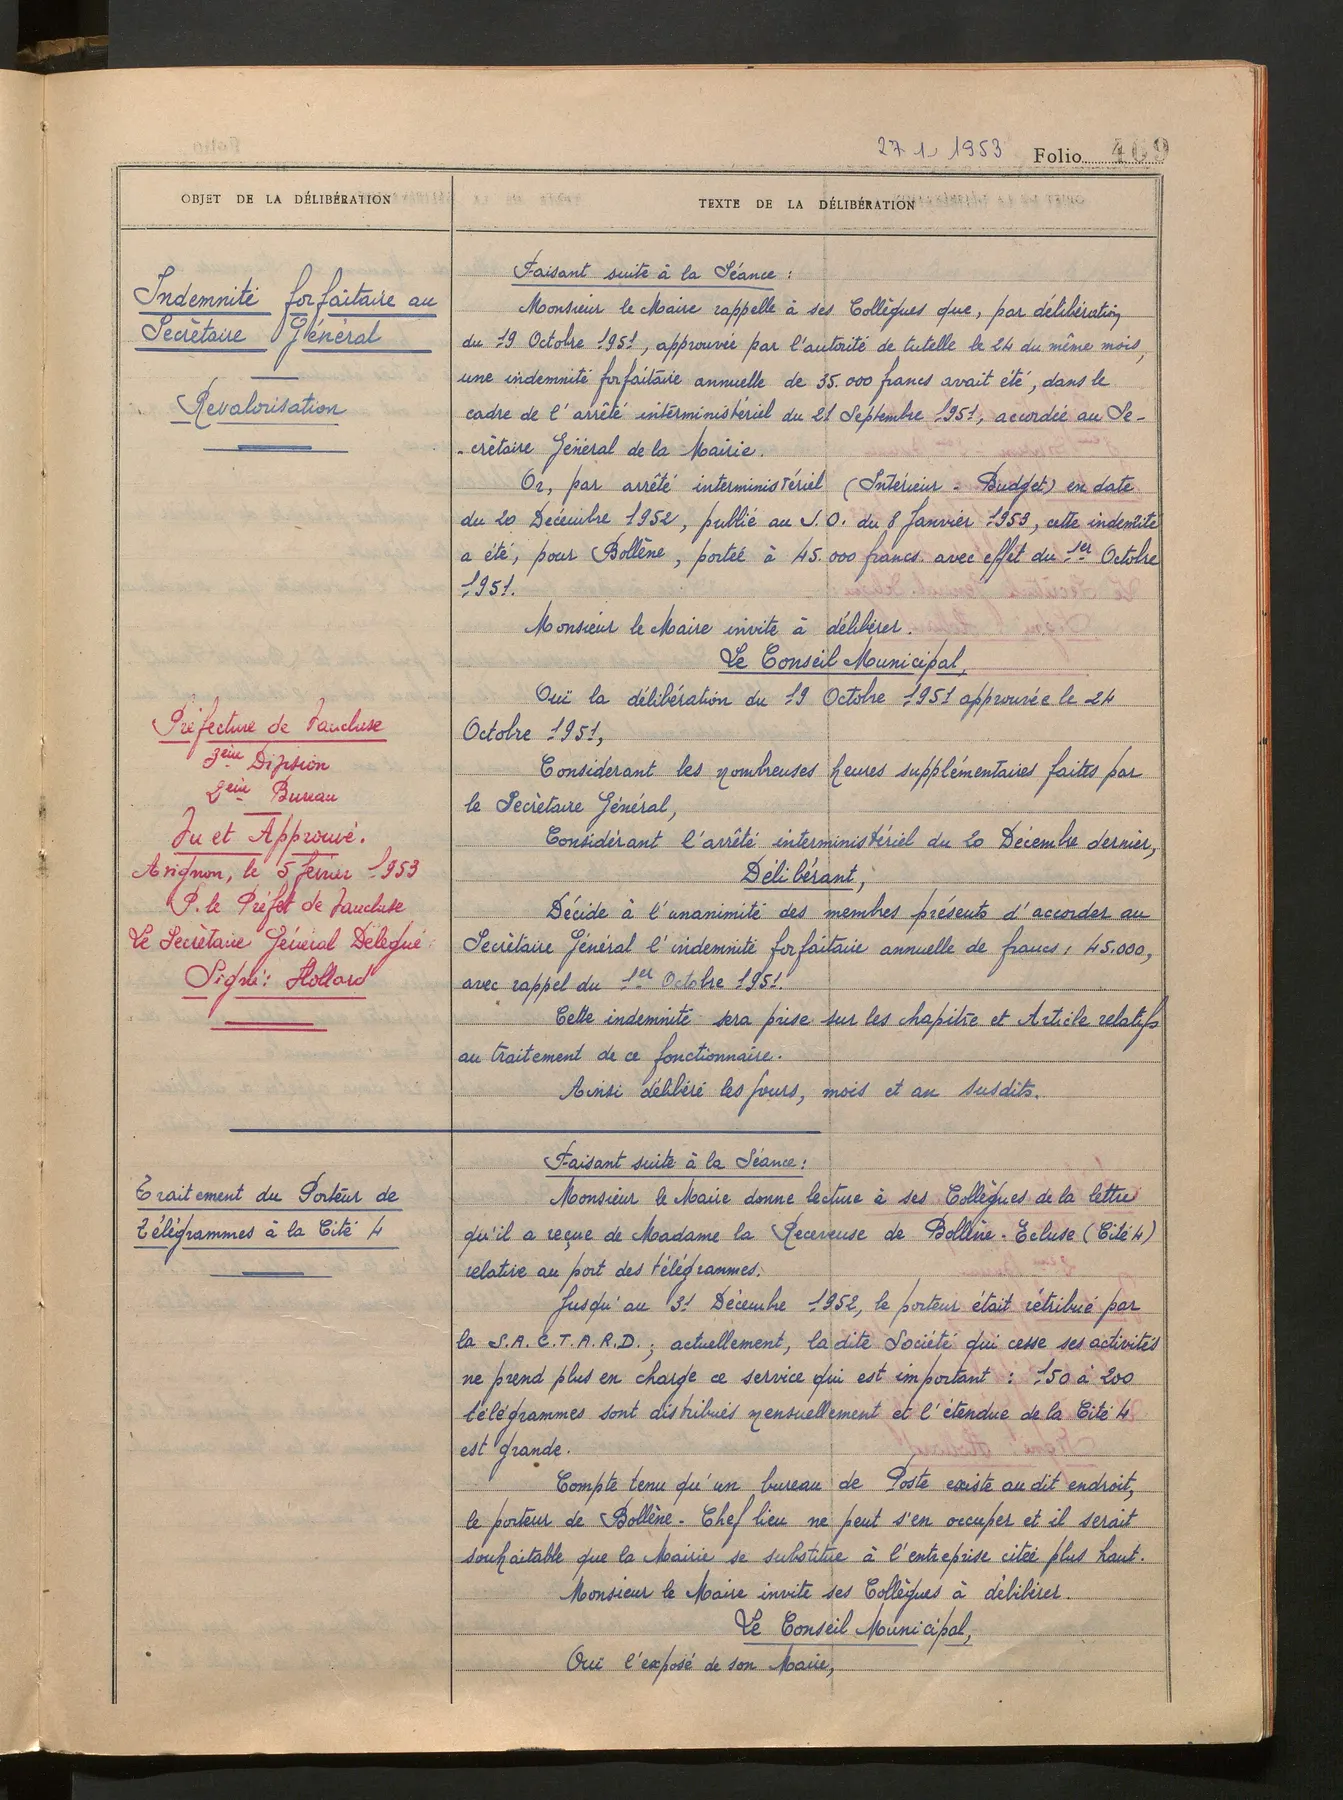 27 1 1953 Folio 469
OBJET DE LA DÉLIBÉRATION
TEXTE DE LA DÉLIBÉRATION
Indemnité forfaitaire au
Secrétaire Général
Revalorisation
Faisant suite à la Séance :
Monsieur le Maire rappelle à ses Collègues que, par délibération
du 19 Octobre 1951, approuvée par l'autorité de tutelle le 24 du même mois,
une indemnité forfaitaire annuelle de 35.000 francs avait été, dans le
cadre de l'arrêté interministériel du 21 Septembre 1951, accordée au Se-
-crétaire Général de la Mairie.
Or, par arrêté interministériel (Intérieur - Budget) en date
du 20 Décembre 1952, publié au J.O. du 8 Janvier 1953, cette indemnité
a été, pour Bollène, portée à 45.000 francs avec effet du 1er Octobre
1951.
Monsieur le Maire invite à délibérer.
Le Conseil Municipal,
Ouï la délibération du 19 Octobre 1951 approuvée le 24
Octobre 1951,
Considérant les nombreuses heures supplémentaires faites par
le Secrétaire Général,
Considérant l'arrêté interministériel du 20 Décembre dernier,
Délibérant,
Décide à l'unanimité des membres présents d'accorder au
Secrétaire Général l'indemnité forfaitaire annuelle de francs : 45.000,
avec rappel du 1er Octobre 1951.
Cette indemnité sera prise sur les chapitre et Article relatifs
au traitement de ce fonctionnaire.
Ainsi délibéré les jours, mois et an susdits.
Préfecture de Vaucluse
3ème Division
2ème Bureau
Vu et Approuvé.
Avignon, le 5 février 1953
P. le Préfet de Vaucluse
Le Secrétaire Général Délégué
Signé : Hollard
Traitement du Porteur de
Télégrammes à la Cité 4
Faisant suite à la Séance :
Monsieur le Maire donne lecture à ses Collègues de la lettre
qu'il a reçue de Madame la Receveuse de Bollène-Ecluse (Cité 4)
relative au port des télégrammes.
Jusqu'au 31 Décembre 1952, le porteur était rétribué par
la S.A.C.T.A.R.D. ; actuellement, la dite Société qui cesse ses activités
ne prend plus en charge ce service qui est important : 150 à 200
télégrammes sont distribués mensuellement et l'étendue de la Cité 4
est grande.
Compte tenu qu'un bureau de Poste existe au dit endroit,
le porteur de Bollène-Chef lieu ne peut s'en occuper et il serait
souhaitable que la Mairie se substitue à l'entreprise citée plus haut.
Monsieur le Maire invite ses Collègues à délibérer.
Le Conseil Municipal,
Ouï l'exposé de son Maire,